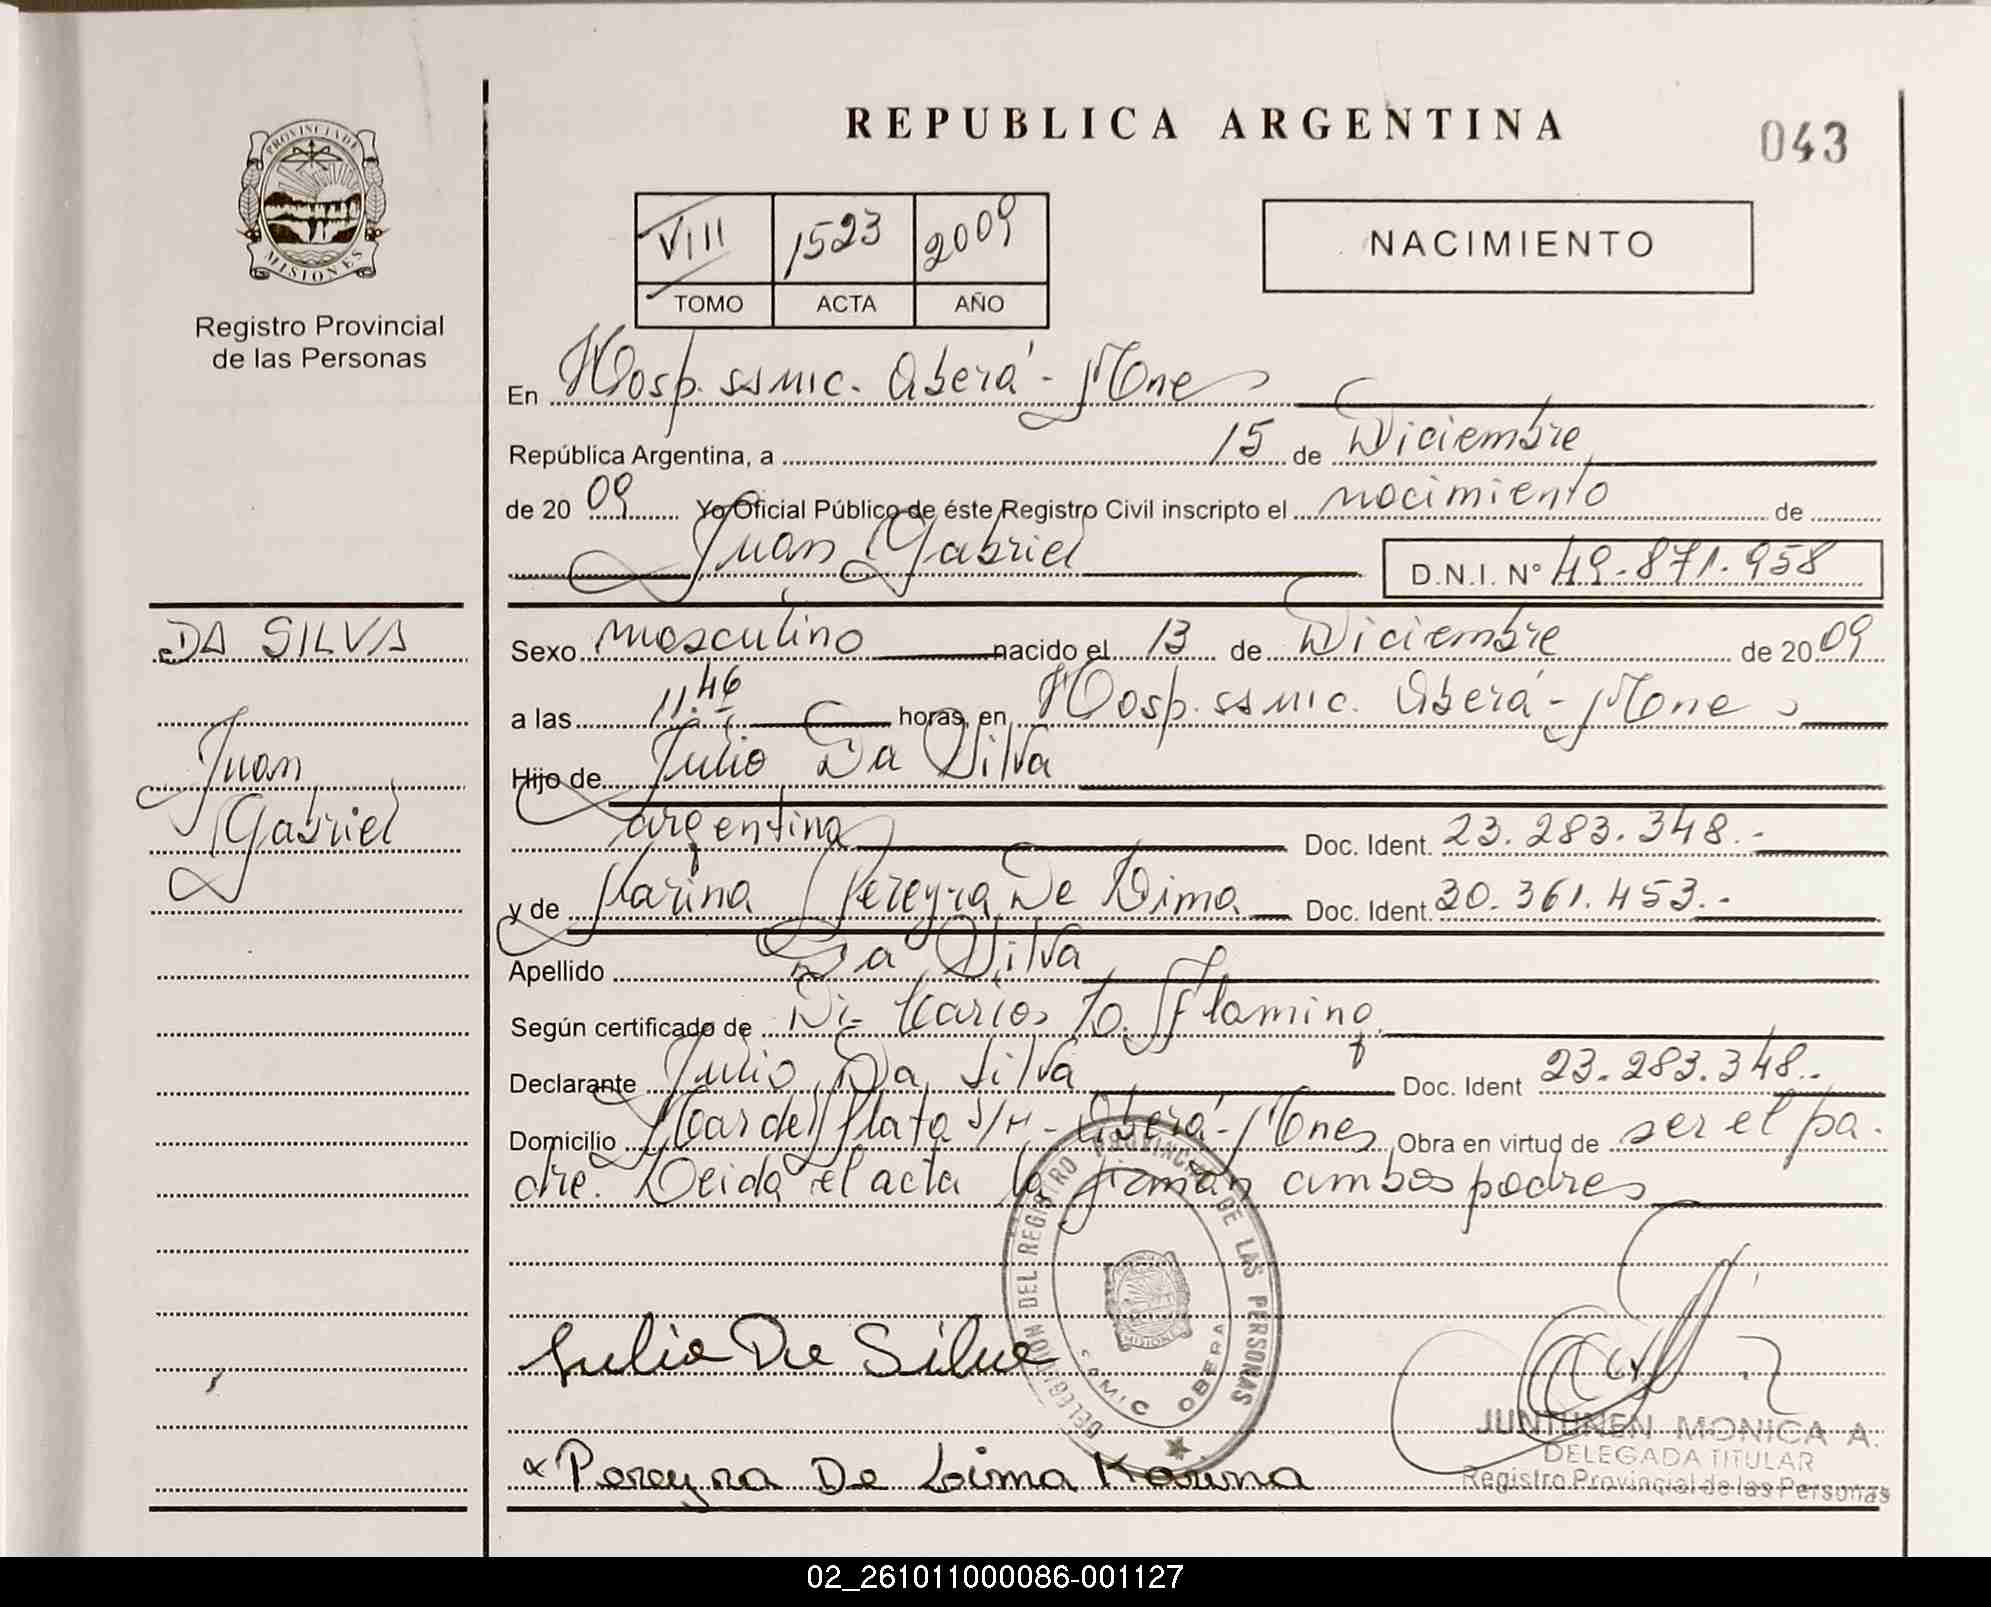 REPUBLICA ARGENTINA
043
PROVINCIA DE
MISIONES
Registro Provincial
de las Personas
VIII 1523 2009
TOMO ACTA AÑO
NACIMIENTO
En Hosp. SAMIC. Oberá - Mnes
República Argentina, a 15 de Diciembre
de 20 09 Yo Oficial Público de éste Registro Civil inscripto el nacimiento de
Juan Gabriel D.N.I. N° 49.871.958
DA SILVA
Juan
Gabriel
Sexo masculino nacido el 13 de Diciembre de 20 09
a las 11.46 horas, en Hosp. SAMIC. Oberá - Mnes
Hijo de Julio Da Silva
argentina Doc. Ident. 23.283.348.-
y de Karina Pereyra De Lima Doc. Ident. 30.361.453.-
Apellido Da Silva
Según certificado de Dr. Carlos Flaming
Declarante Julio Da Silva Doc. Ident 23.283.348.-
Domicilio Mar del Plata S/N - Oberá - Mnes Obra en virtud de ser el pa-
dre. Leida el acta la firman ambos padres
DELEGACION DEL REGISTRO PROVINCIAL DE LAS PERSONAS
MISIONES
SAMIC OBERA
Julio Da Silva
x Pereyra De Lima Karina
JUNTUNEN MONICA A.
DELEGADA TITULAR
Registro Provincial de las Personas
02_261011000086-001127